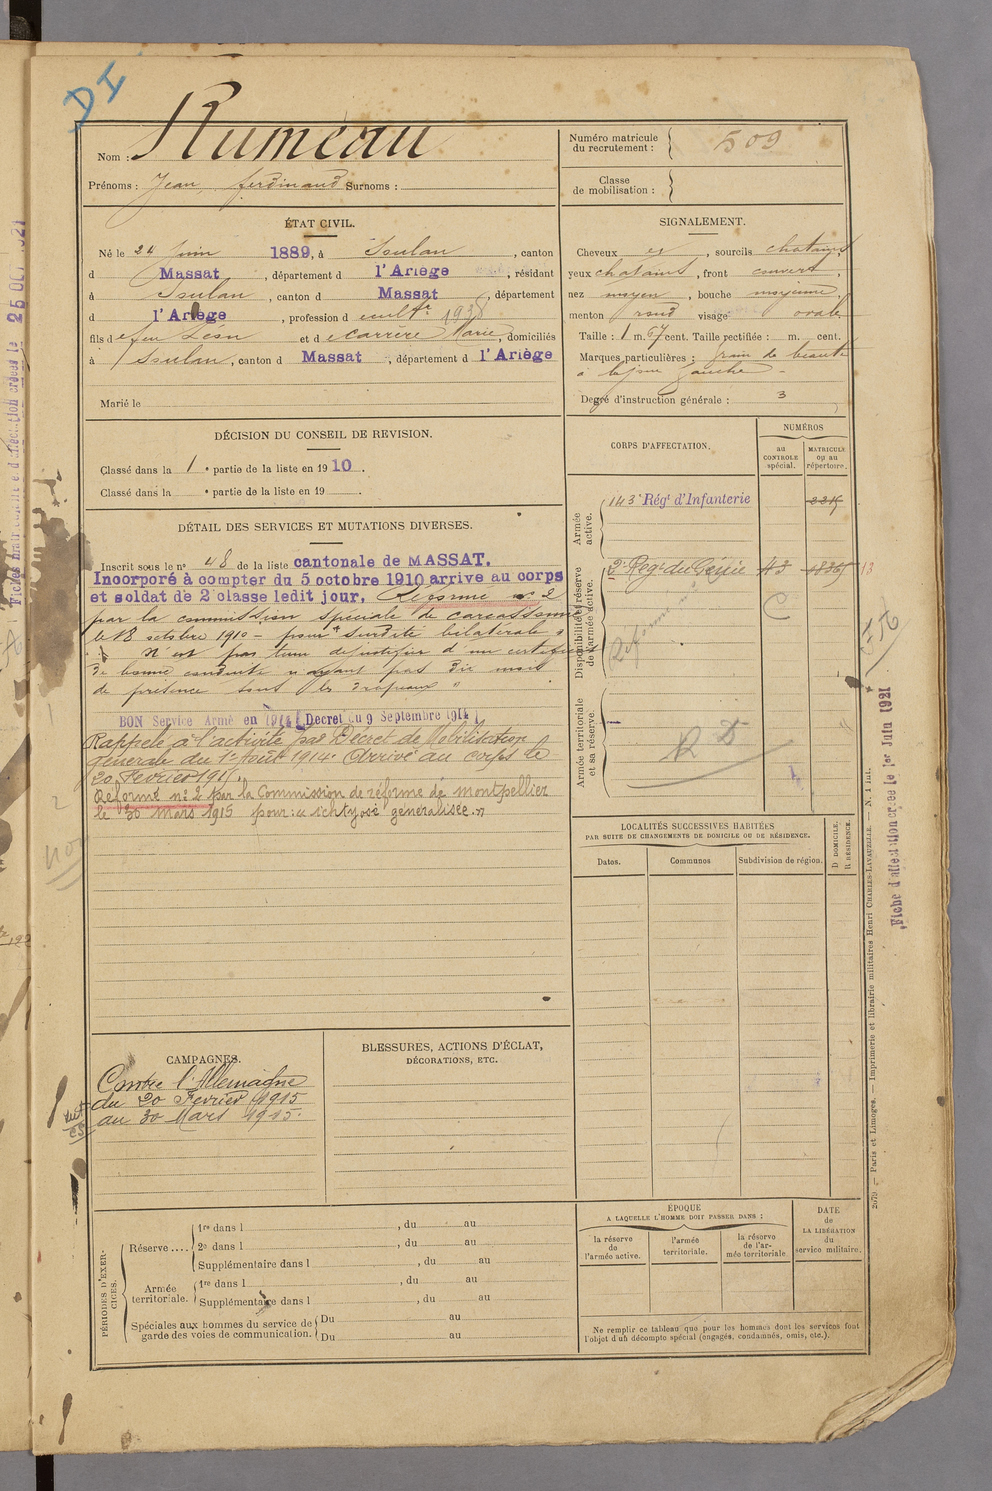 DI
Nom : Rumeau
Prénoms : Jean, ferdinand Surnoms :
Numéro matricule du recrutement : 509
Classe de mobilisation :
ÉTAT CIVIL.
Né le 24 Juin 1889, à Soulan, canton
d Massat, département d l'Ariège, résidant
à Soulan, canton d Massat, département
d l'Ariège, profession d cultr 1938
fils d feu Léon et d Carrère Marie, domiciliés
à Soulan, canton d Massat, département d l'Ariège
Marié le
SIGNALEMENT.
Cheveux et, sourcils chatains,
yeux chatains, front couvert,
nez moyen, bouche moyenne,
menton rond visage ovale
Taille : 1 m. 67 cent. Taille rectifiée : m. cent.
Marques particulières : grain de beauté
à la joue gauche
Degré d'instruction générale : 3
DÉCISION DU CONSEIL DE REVISION.
Classé dans la 1e partie de la liste en 1910.
Classé dans la e partie de la liste en 19 .
DÉTAIL DES SERVICES ET MUTATIONS DIVERSES.
Inscrit sous le no 48 de la liste cantonale de MASSAT.
Incorporé à compter du 5 octobre 1910 arrive au corps
et soldat de 2e classe ledit jour. Réformé no 2
par la commission spéciale de Carcassonne
le 18 octobre 1910 – pour "surdité bilatérale"
N'est pas tenu de justifier d'un certificat
de bonne conduite n'ayant pas dix mois
de présence sous les drapeaux "
BON Service Armé en 1914 (Decret du 9 Septembre 1914)
Rappelé à l'activité par Décret de Mobilisation
générale du 1er Août 1914. Arrivé au corps le
20 Fevrier 1915.
Réformé no 2 par la Commission de réforme de montpellier
le 30 mars 1915 pour : "ichtyose généralisée."
CORPS D'AFFECTATION.
NUMÉROS
au CONTROLE spécial.
MATRICULE ou au répertoire.
Armée active.
143e Régt d'Infanterie
Disponibilité et réserve de l'armée active.
2e Régt du Génie
Réformé no 2
Armée territoriale et sa réserve.
RD
LOCALITÉS SUCCESSIVES HABITÉES
PAR SUITE DE CHANGEMENTS DE DOMICILE OU DE RÉSIDENCE.
Dates.
Communes
Subdivision de région.
D DOMICILE.
R RÉSIDENCE.
CAMPAGNES.
Contre l'Allemagne
du 20 Fevrier 1915
au 30 Mars 1915.
BLESSURES, ACTIONS D'ÉCLAT,
DÉCORATIONS, ETC.
PÉRIODES D'EXERCICES.
Réserve ....
1re dans l , du au
2e dans l , du au
Supplémentaire dans l , du au
Armée territoriale.
1re dans l , du au
Supplémentaire dans l , du au
Spéciales aux hommes du service de garde des voies de communication.
Du au
Du au
ÉPOQUE
A LAQUELLE L'HOMME DOIT PASSER DANS :
la réserve de l'armée active.
l'armée territoriale.
la réserve de l'armée territoriale
DATE de LA LIBÉRATION du service militaire.
Ne remplir ce tableau que pour les hommes dont les services font
l'objet d'un décompte spécial (engagés, condamnés, omis, etc.).
Fiche d'affectation créée le 1er Juin 1921
2679 — Paris et Limoges. — Imprimerie et librairie militaires Henri CHARLES-LAVAUZELLE.